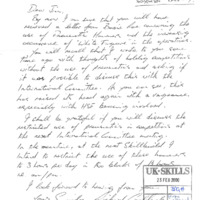 Dear Jim
By now I am sure that you will have
received a letter from         concerning the use
of Pneumatic Hammers and the increasing
occurrence of White Finger in the operatives.
You will recall that I wrote to you some
time ago with thoughts of holding competitions
without the use of pneumatics and asking if
it was possible to discuss this with the
International Committee. As you can see, that
has raised its head again with a vengeance,
especially with HSE becoming involved.
I shall be grateful if you will discuss the
restricted use of pneumatics in competition at
the next International Committee meeting.
In the meantime, at the next Skillbuild I
intend to restrict the use of these hammers to
3 hours per day in the
I look forward to hearing from
UK-SKILLS
23 FEB